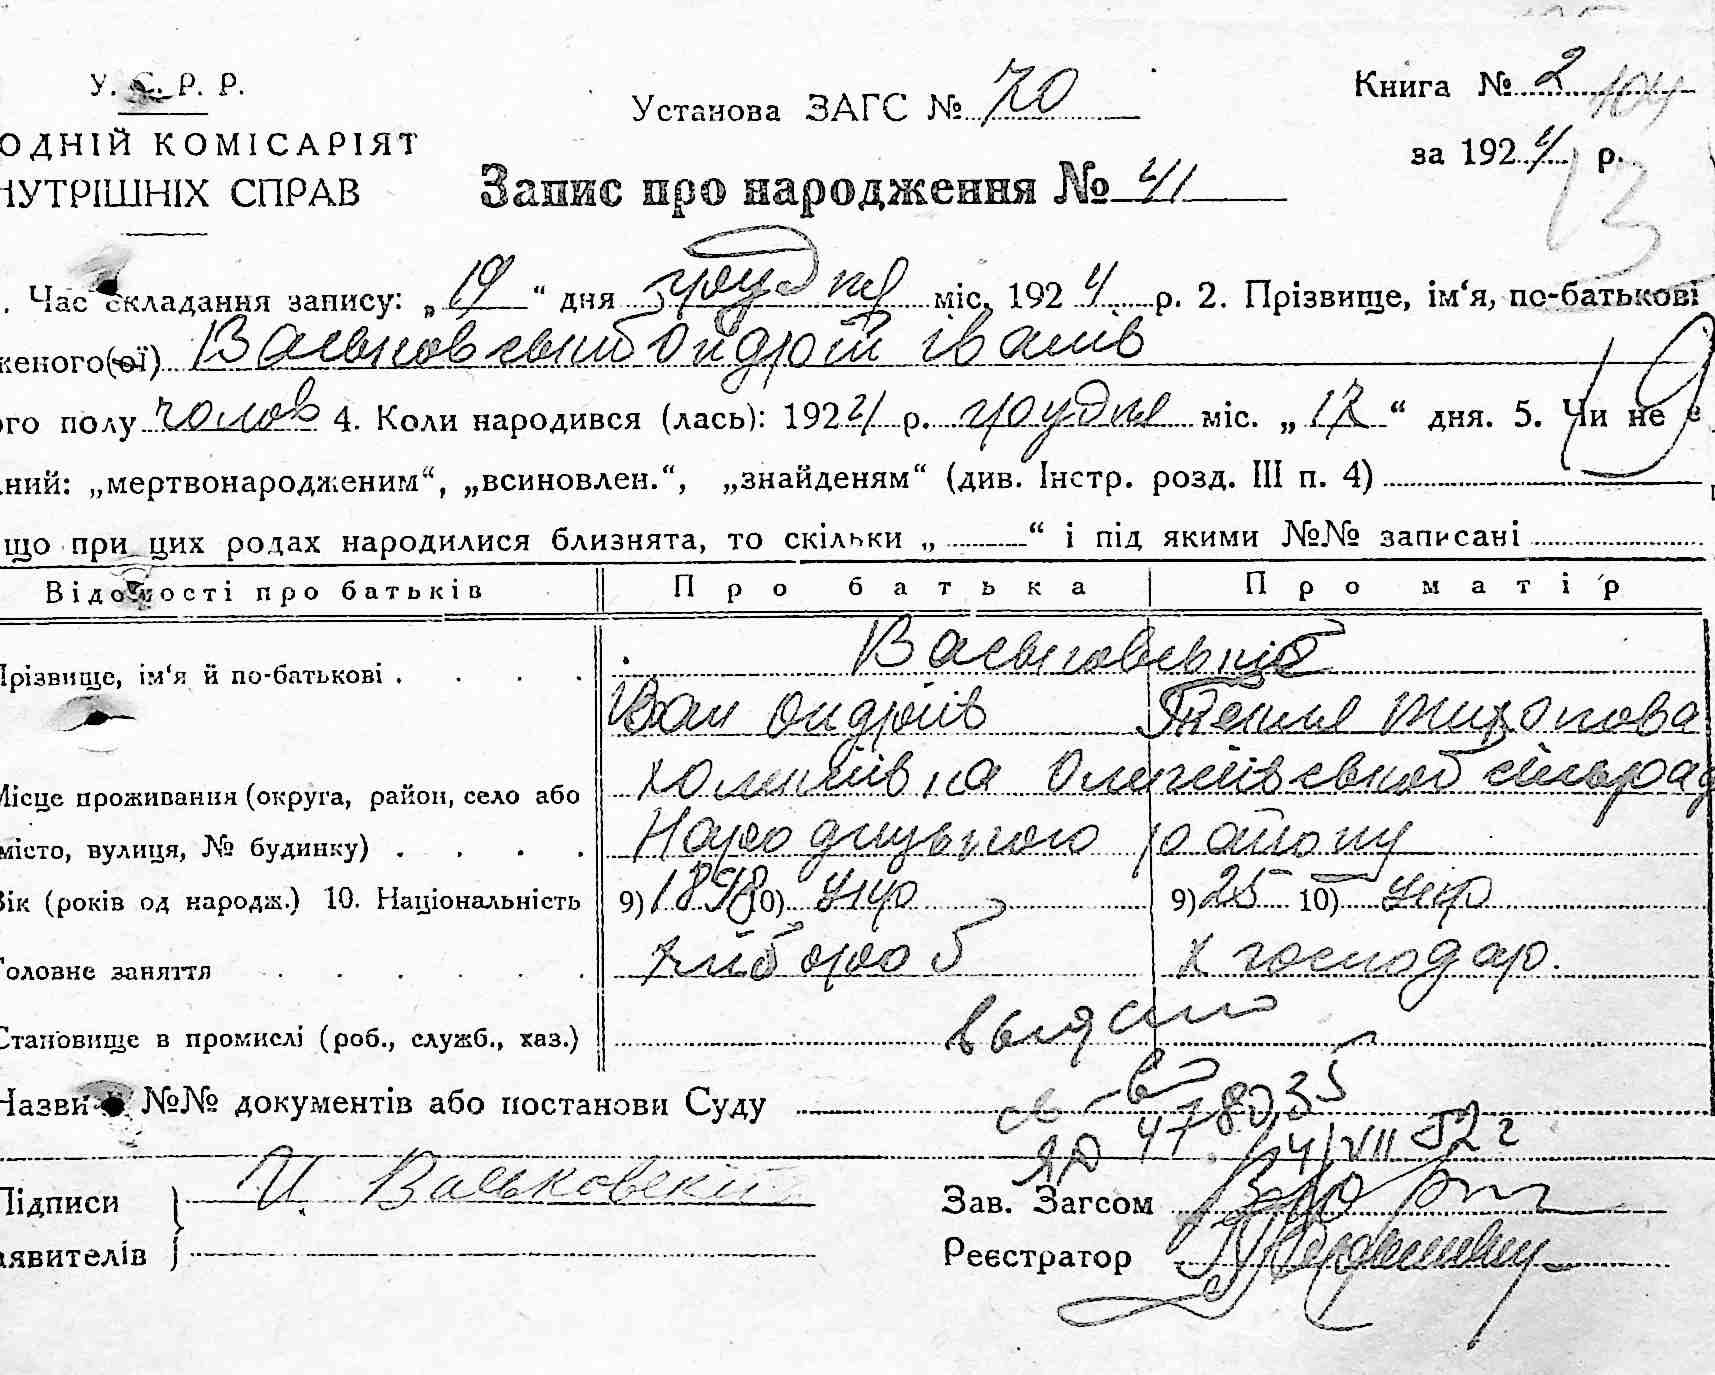 У. С. Р. Р.
ОДНІЙ КОМІСАРІЯТ
НУТРІШНІХ СПРАВ
Установа ЗАГС № 70
Книга № 2 104
за 1924 р.
13
Запис про народження № 41
. Час складання запису: „19“ дня грудня міс. 1924 р. 2. Прізвище, ім‘я, по-батькові
женого(ої) Васьковський Ондрій Іванів
19
ого полу чолов 4. Коли народився (лась): 1924 р. грудня міс. „17“ дня. 5. Чи не є
ний: „мертвонародженим“, „всиновлен.“, „знайденям“ (див. Інстр. розд. III п. 4)
що при цих родах народилися близнята, то скільки „ “ і під якими №№ записані
Відомості про батьків Про батька Про матір
Прізвище, ім‘я й по-батькові . . . . Васьковські
Іван Ондріїв
Місце проживання (округа, район, село або
місто, вулиця, № будинку) . . . . Народицького району
Вік (років од народж.) 10. Національність 9) 1898 10) Укр 9) 25 10) Укр
Головне заняття . . . . . . Хлібороб Х господар.
Становище в промислі (роб., служб., хаз.)
Назви й №№ документів або постанови Суду
478035
4/VII 52 г
Підписи
явителів
И. Васьковский
Зав. Загсом
Реєстратор